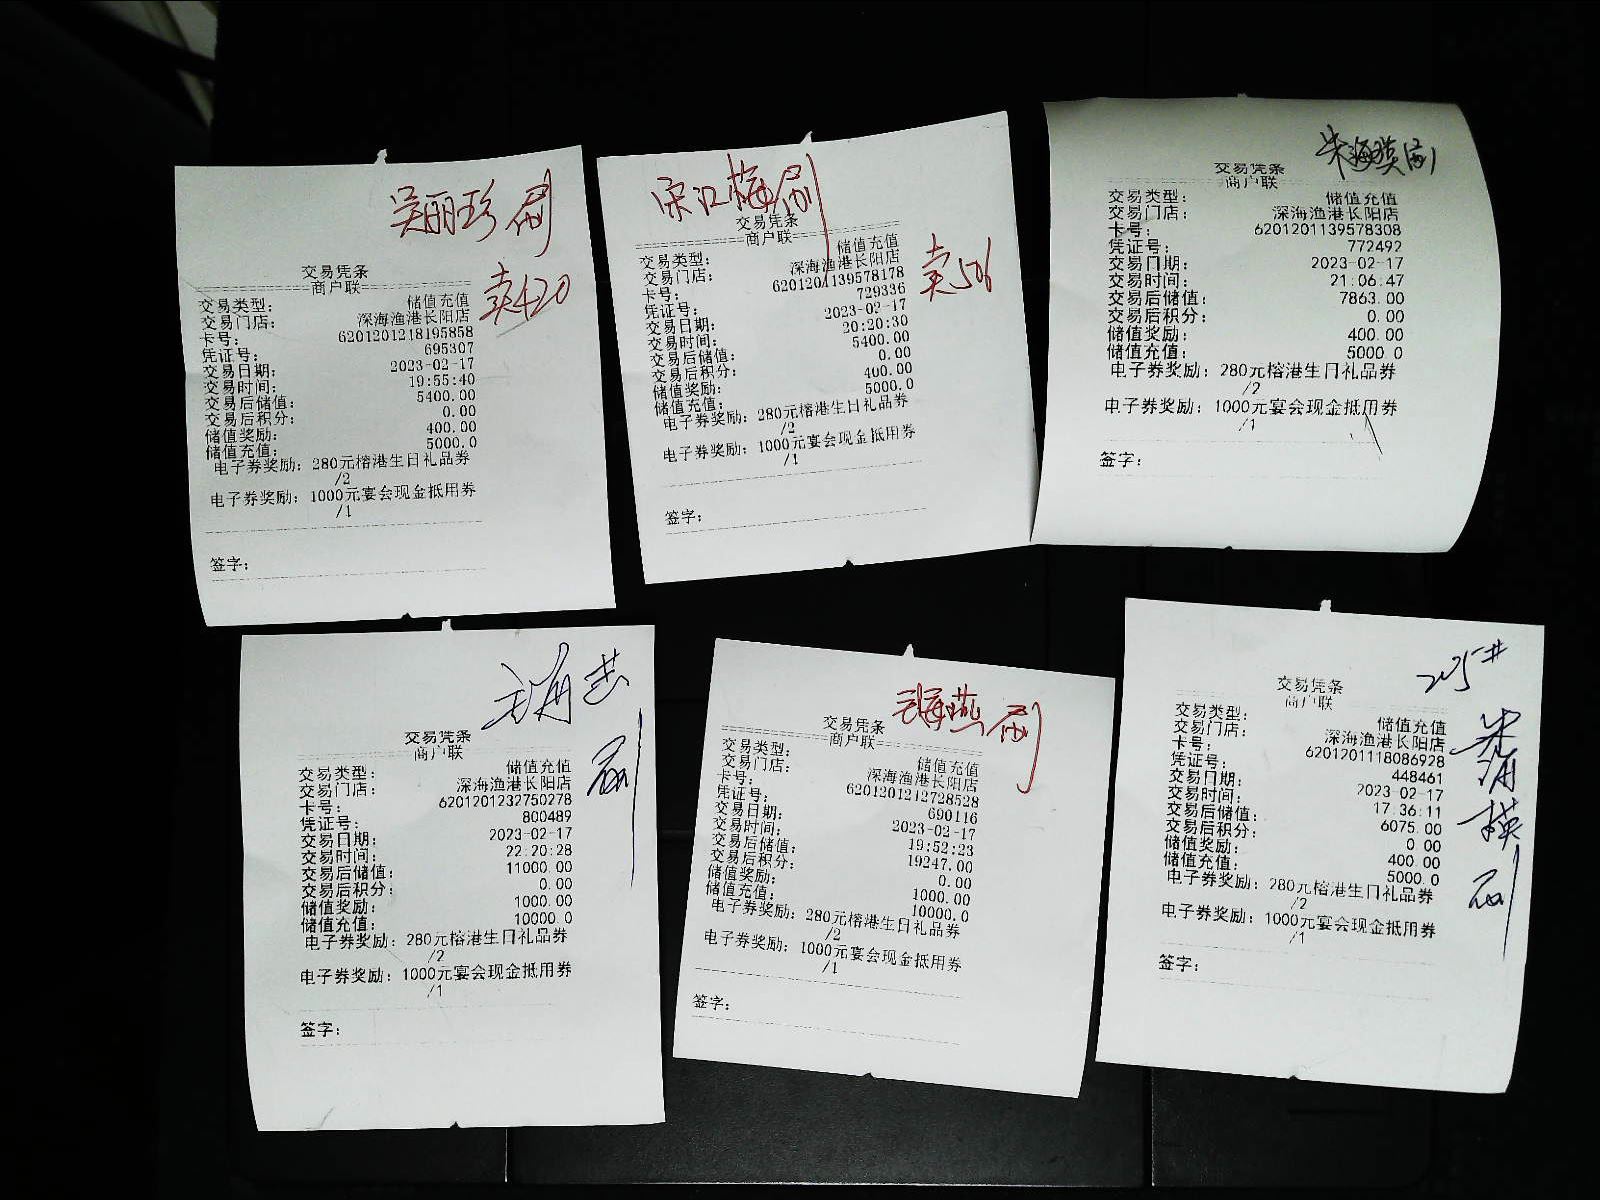 吴丽珍刷
卖420
交易凭条
商户联
交易类型: 储值充值
交易门店: 深海渔港长阳店
卡号: 6201201218195858
凭证号: 695307
交易日期: 2023-02-17
交易时间: 19:55:40
交易后储值: 5400.00
交易后积分: 0.00
储值奖励: 400.00
储值充值: 5000.0
电子券奖励: 280元榕港生日礼品券
/2
电子券奖励: 1000元宴会现金抵用券
/1
签字:
宋江梅刷
卖506
交易凭条
商户联
交易类型: 储值充值
交易门店: 深海渔港长阳店
卡号: 6201201139578178
凭证号: 729336
交易日期: 2023-02-17
交易时间: 20:20:30
交易后储值: 5400.00
交易后积分: 0.00
储值奖励: 400.00
储值充值: 5000.0
电子券奖励: 280元榕港生日礼品券
/2
电子券奖励: 1000元宴会现金抵用券
/1
签字:
朱海瑛刷
交易凭条
商户联
交易类型: 储值充值
交易门店: 深海渔港长阳店
卡号: 6201201139578308
凭证号: 772492
交易日期: 2023-02-17
交易时间: 21:06:47
交易后储值: 7863.00
交易后积分: 0.00
储值奖励: 400.00
储值充值: 5000.0
电子券奖励: 280元榕港生日礼品券
/2
电子券奖励: 1000元宴会现金抵用券
/1
签字:
刷
交易凭条
商户联
交易类型: 储值充值
交易门店: 深海渔港长阳店
卡号: 6201201232750278
凭证号: 800489
交易日期: 2023-02-17
交易时间: 22:20:28
交易后储值: 11000.00
交易后积分: 0.00
储值奖励: 1000.00
储值充值: 10000.0
电子券奖励: 280元榕港生日礼品券
/2
电子券奖励: 1000元宴会现金抵用券
/1
签字:
王海燕刷
交易凭条
商户联
交易类型: 储值充值
交易门店: 深海渔港长阳店
卡号: 6201201212728528
凭证号: 690116
交易日期: 2023-02-17
交易时间: 19:52:23
交易后储值: 19247.00
交易后积分: 0.00
储值奖励: 1000.00
储值充值: 10000.0
电子券奖励: 280元榕港生日礼品券
/2
电子券奖励: 1000元宴会现金抵用券
/1
签字:
205#
刷
交易凭条
商户联
交易类型: 储值充值
交易门店: 深海渔港长阳店
卡号: 6201201118086928
凭证号: 448461
交易日期: 2023-02-17
交易时间: 17:36:11
交易后储值: 6075.00
交易后积分: 0.00
储值奖励: 400.00
储值充值: 5000.0
电子券奖励: 280元榕港生日礼品券
/2
电子券奖励: 1000元宴会现金抵用券
/1
签字: